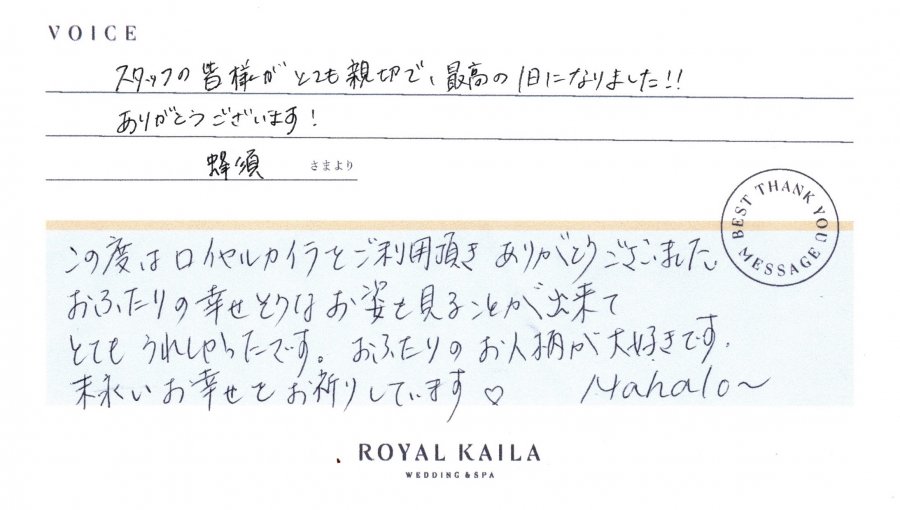 VOICE
スタッフの皆様がとても親切で、最高の1日になりました!!
ありがとうございます!
蜂須 さまより
BEST THANK YOU MESSAGE
この度はロイヤルカイラをご利用頂きありがとうございました。
おふたりの幸せそうなお姿を見ることが出来て
とてもうれしかったです。おふたりのお人柄が大好きです。
末永いお幸せをお祈りしています♡ Mahalo~
ROYAL KAILA
WEDDING & SPA